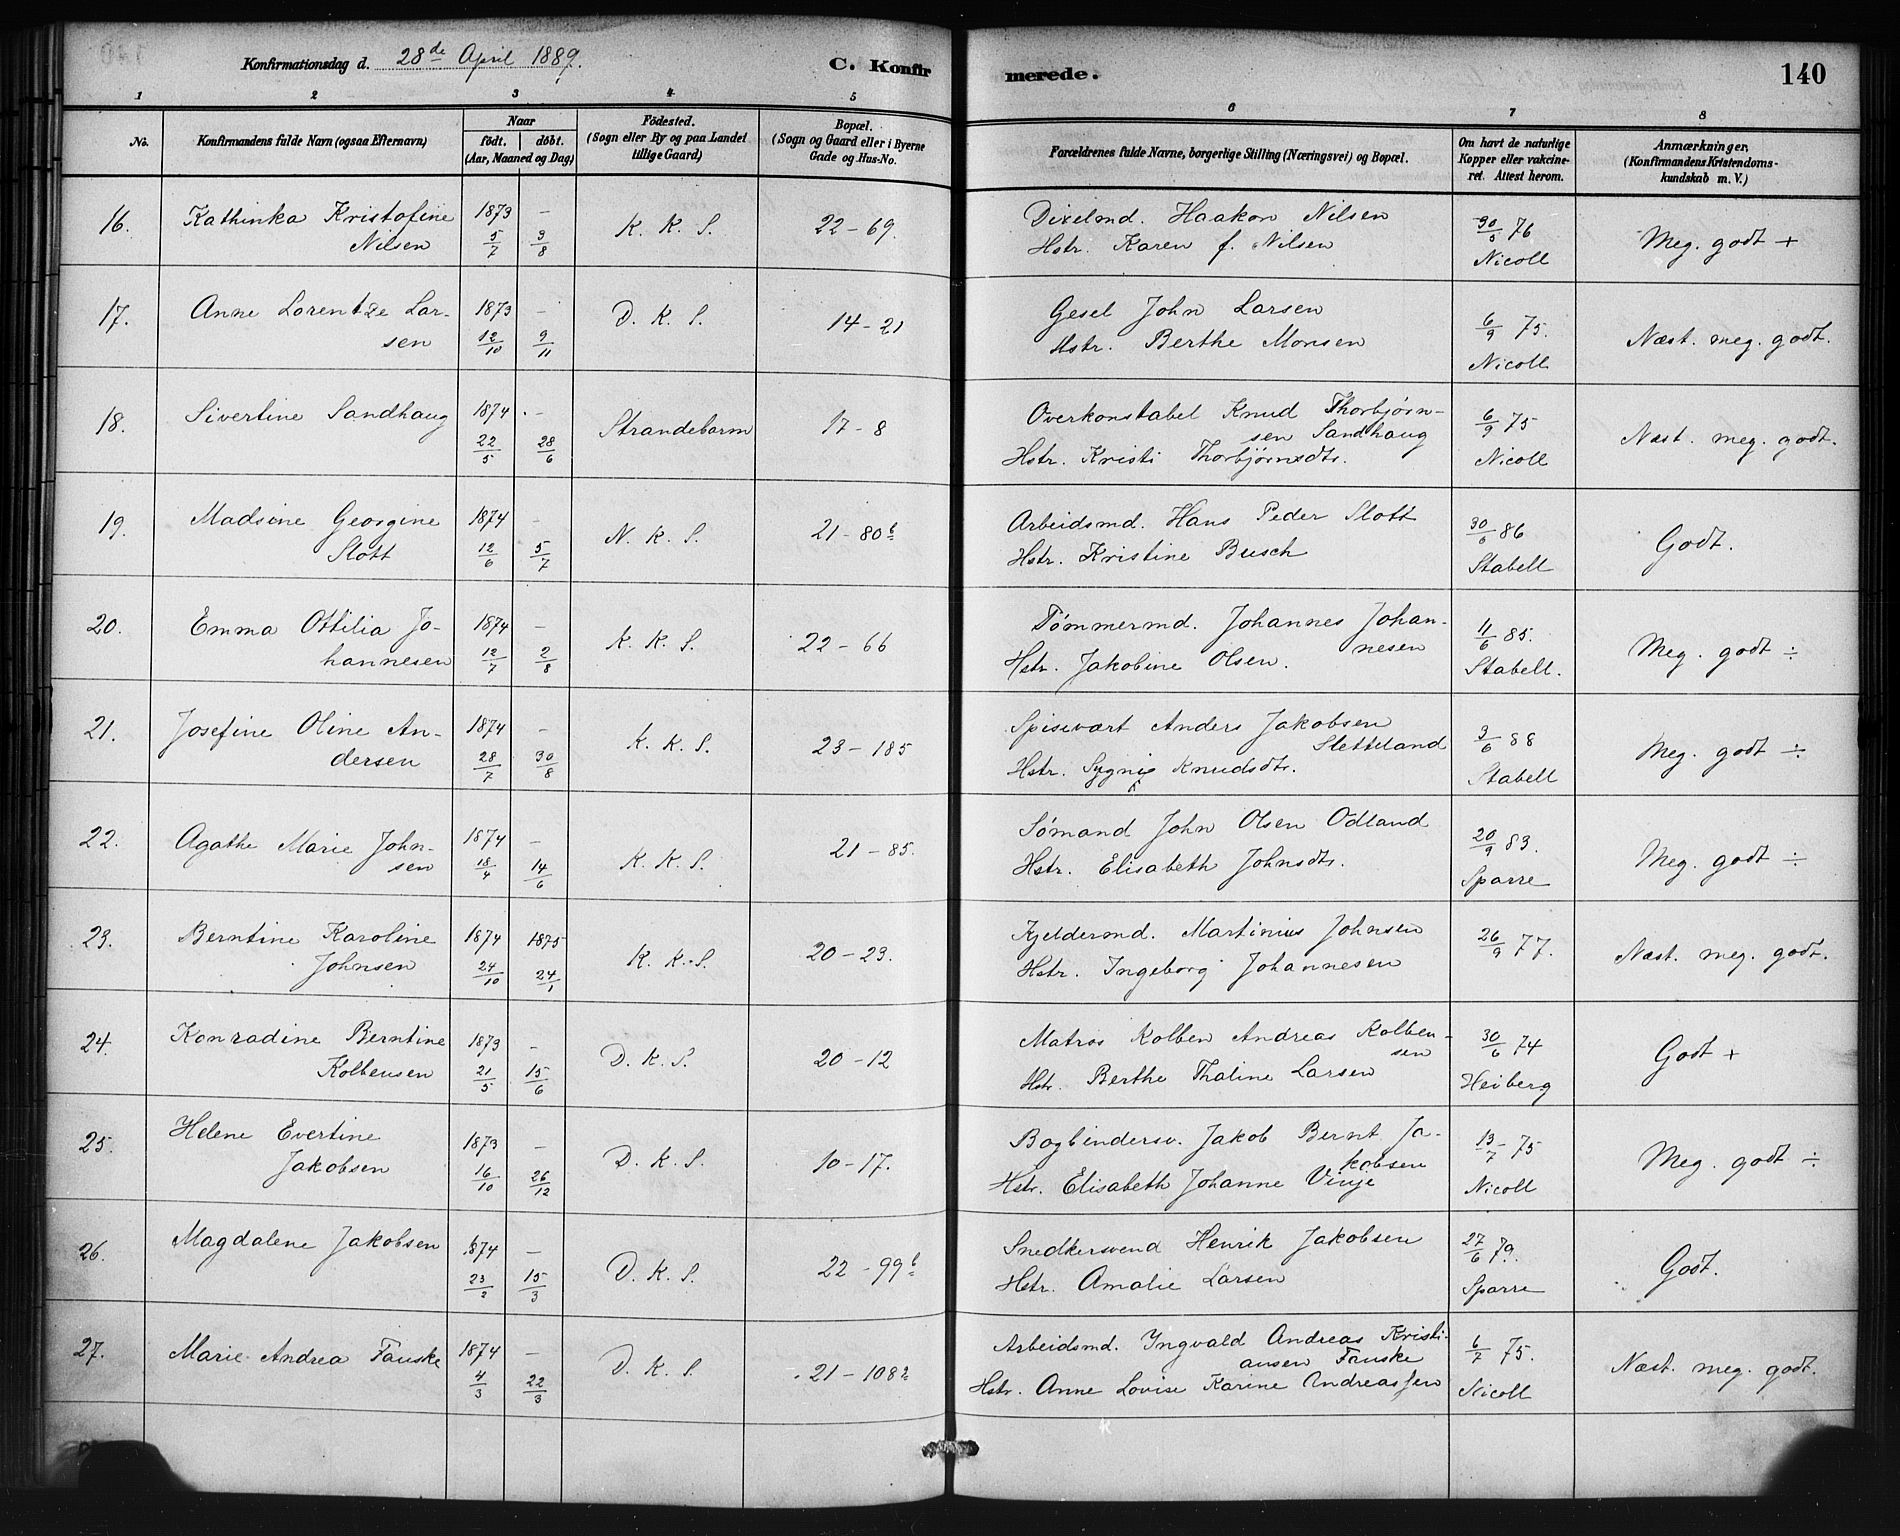 Konfirmationsdag d. 28de April 1889.
C. Konfir
merede.
140
1 2 3 4 5 6 7 8
No.
Konfirmandens fulde Navn (ogsaa Efternavn)
Naar
født. døbt.
(Aar, Maaned og Dag)
Fødested.
(Sogn eller By og paa Landet
tillige Gaard)
Bopæl.
(Sogn og Gaard eller i Byerne
Gade og Hus-No.
Forældrenes fulde Navne, borgerlige Stilling (Næringsvei) og Bopæl.
Om havt de naturlige
Kopper eller vakcine-
ret. Attest herom.
Anmærkninger,
(Konfirmandens Kristendoms-
kundskab m. V.)
16. Kathinka Kristofine 1873 – K. K. S. 22 – 69. Dixelmd. Haakon Nilsen 30/5 76 Meg. godt +
Nilsen 5/7 3/8 Hstr. Karen f. Nilsen Nicoll
17. Anne Lorentze Lar- 1873 – D. K. S. 14 – 21 Gesel John Larsen 6/9 75. Næst. meg. godt.
sen 12/10 9/11 Hstr. Berthe Monsen Nicoll
18. Sivertine Sandhaug 1874 – Strandebarm 17 – 8 Overkonstabel Knud Thorbjørn- 6/9 75 Næst. meg. godt.
22/5 28/6 sen Sandhaug
Hstr. Kristi Thorbjørnsdtr. Nicoll
19. Madsine Georgine 1874 – N. K. S. 21 – 80b Arbeidsmd. Hans Peder Slott 30/6 86 Godt.
Slott 12/6 5/7 Hstr. Kristine Busch Stabell
20. Emma Ottilia Jo- 1874 – K. K. S. 22 – 66 Tømmermd. Johannes Johan- 11/6 85. Meg. godt ÷
hannesen 12/7 2/8 nesen
Hstr. Jakobine Olsen. Stabell.
21. Josefine Oline An- 1874 – K. K. S. 23 – 185 Spisevært Anders Jakobsen 3/6 88 Meg. godt ÷
dersen 28/7 30/8 Sletteland
Hstr. Sygni Knudsdtr. Stabell
22. Agathe Marie John- 1874 – K. K. S. 21 – 85. Sømand John Olsen Odland 20/9 83. Meg. godt ÷
sen 18/4 14/6 Hstr. Elisabeth Johnsdtr. Sparre
23. Berntine Karoline 1874 1875 K. K. S. 20 – 23. Kjeldermd. Martinius Johnsen 26/9 77. Næst. meg. godt.
Johnsen 24/10 24/1 Hstr. Ingeborg Johannesen
24. Konradine Berntine 1873 – D. K. S 20 – 12 Matros Kolben Andreas Kolben- 30/6 74 Godt +
Kolbensen 21/5 15/6 sen
Hstr. Berthe Thaline Larsen Heiberg
25. Helene Evertine 1873 – D. K. S. 10 – 17. Bogbindersv. Jakob Bernt Ja- 13/7 75 Meg. godt ÷
Jakobsen 16/10 26/12 kobsen
Hstr. Elisabeth Johanne Vinje Nicoll
26. Magdalene Jakobsen 1874 – D. K. S. 22 – 99b Snedkersvend Henrik Jakobsen 27/6 79. Godt.
23/2 15/3 Hstr. Amalie Larsen Sparre
27. Marie Andrea Fauske 1874 – D. K. S. 21 – 108 Arbeidsmd. Yngvald Andreas Kristi- 6/7 75. Næst. meg. godt.
4/3 22/3 ansen Fauske
Hstr. Anne Lovise Karine Andreassen Nicoll